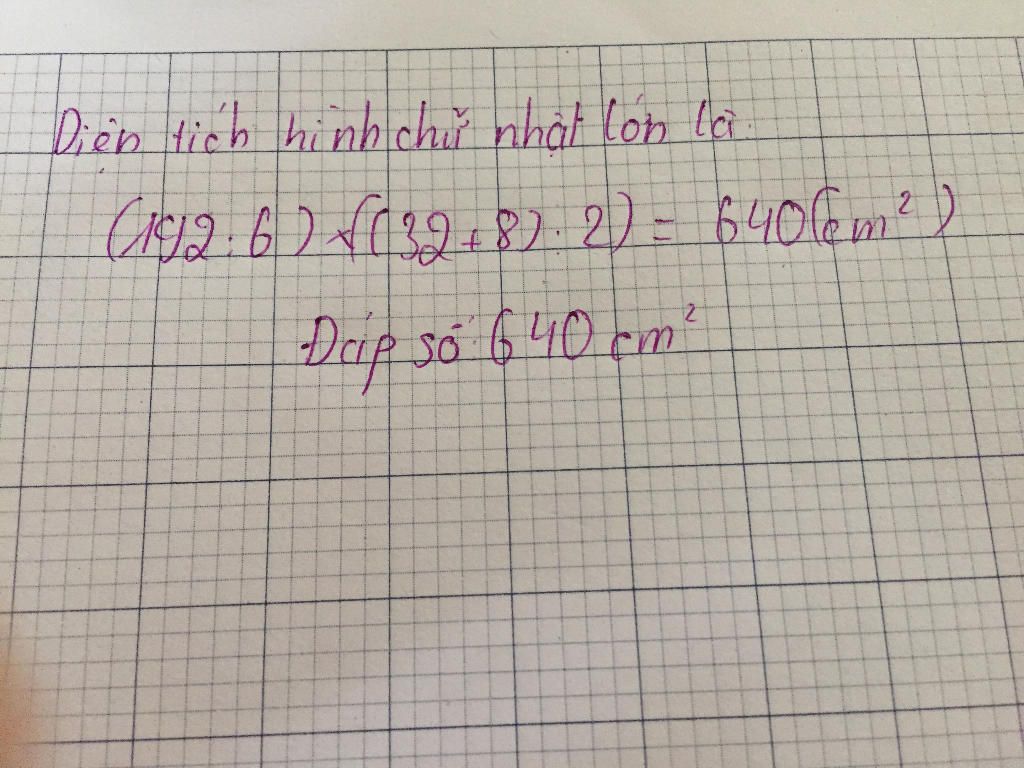 Diện tích hình chữ nhật lớn là.
(192 : 6) × ((32 + 8) : 2) = 640 (cm²)
Đáp số : 640 cm²